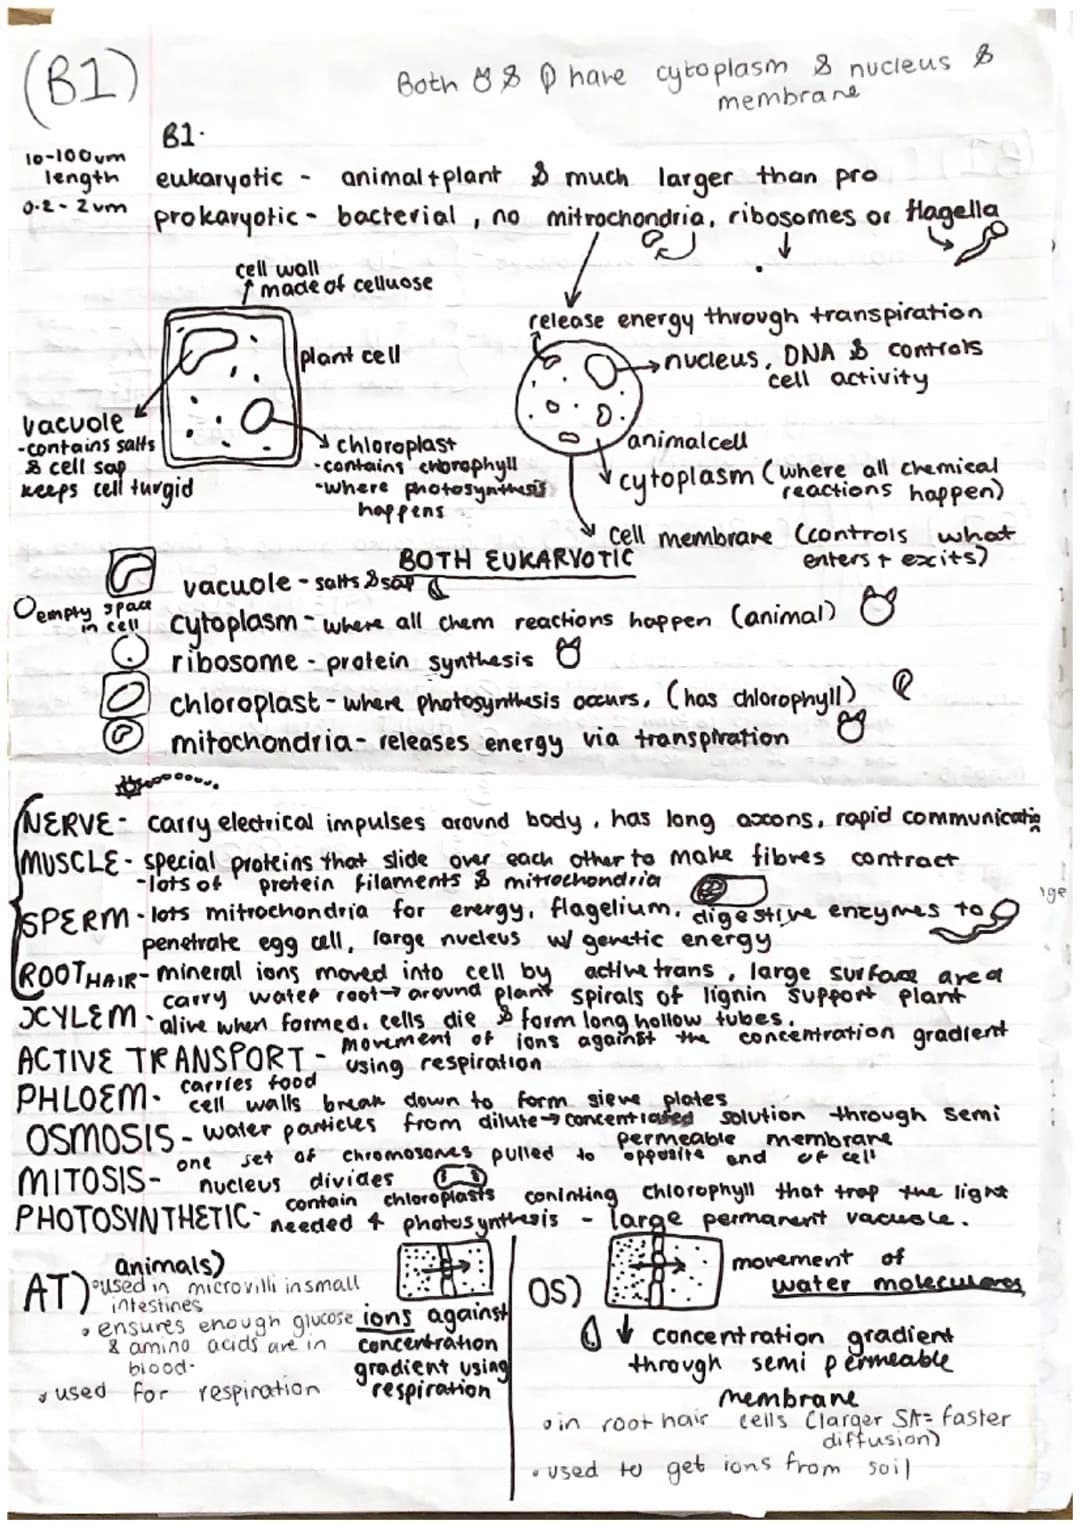 (B1)
Both & have cytoplasm & nucleus &
membrane
B1.
10-100um
length
0.2-2um
eukaryotic - animal + plant & much larger than pro
prokaryotic - bacterial, no mitrochondria, ribosomes or flagella
cell wall
made of celluose
plant cell
vacuole
-contains salts
& cell sap
keeps cell turgid
chloroplast
-contains chorophyll
-where photosynthesis
happens
release energy through transpiration
nucleus, DNA & controls
cell activity
animal cell
cytoplasm (where all chemical
reactions happen)
cell membrane (controls what
enters + exits)
BOTH EUKARYOTIC
vacuole - salts & sap
empty space
in cell
cytoplasm - where all chem reactions happen (animal)
ribosome - protein synthesis
chloroplast - where photosynthesis occurs, (has chlorophyll)
mitochondria - releases energy via transpiration
NERVE - carry electrical impulses around body, has long axons, rapid communicatin
MUSCLE - special proteins that slide over each other to make fibres contract
-lots of protein filaments & mitrochondria
SPERM - lots mitrochondria for energy, flagelium, digestive enzymes to
penetrate egg cell, large nucleus w/ genetic energy
ROOT HAIR - mineral ions moved into cell by active trans, large surface area
carry water root → around plant spirals of lignin support plant
XYLEM - alive when formed, cells die & form long hollow tubes.
ACTIVE TRANSPORT - movement of ions against the concentration gradient
using respiration
PHLOEM - carries food
cell walls break down to form sieve plates
OSMOSIS - water particles from dilute → concentrated solution through semi
permeable membrane
MITOSIS - one set of chromosones pulled to opposite end of cell
nucleus divides
PHOTOSYNTHETIC - contain chloroplasts coninting chlorophyll that trap the light
needed 4 photosynthesis - large permanent vacuole.
AT) animals)
• used in microvilli in small
intestines
• ensures enough glucose
& amino acids are in
blood.
• used for respiration
ions against
concentration
gradient using
respiration
OS) movement of
water moleculares
↓ concentration gradient
through semi permeable
membrane
• in root hair cells (larger SA = faster
diffusion)
• used to get ions from soil